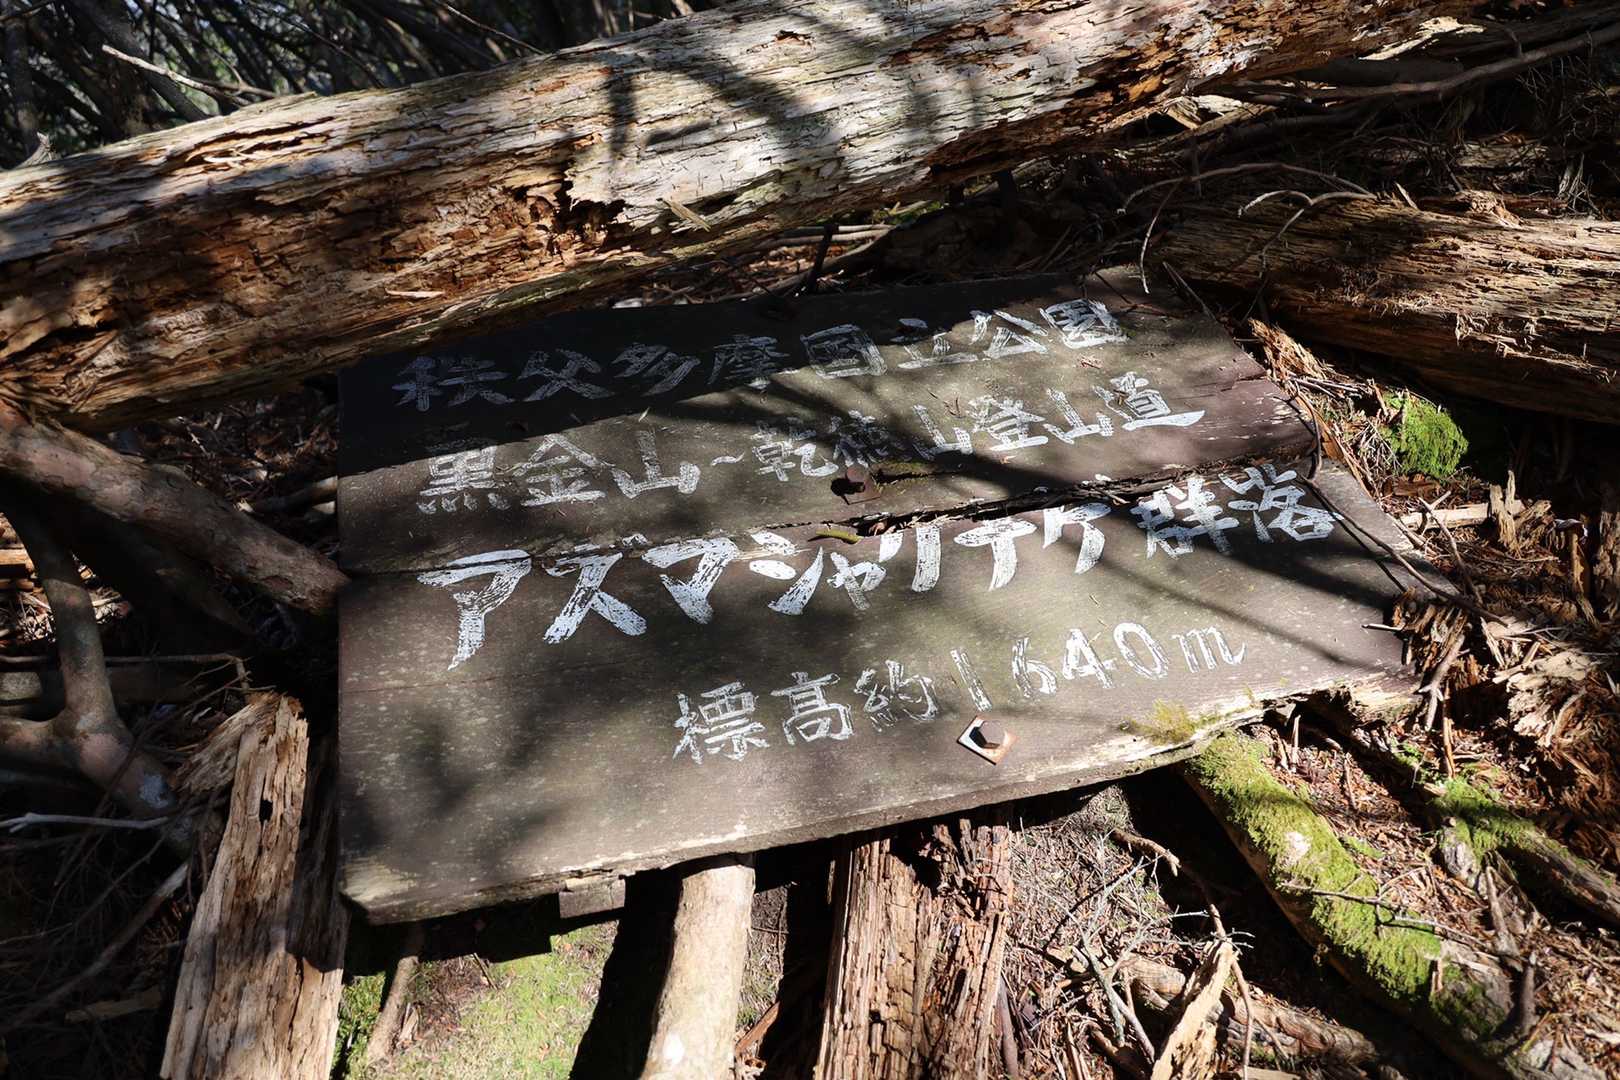 秩父多摩国立公園
黒金山~乾徳山登山道
アズマシャクナゲ群落
標高約1640m